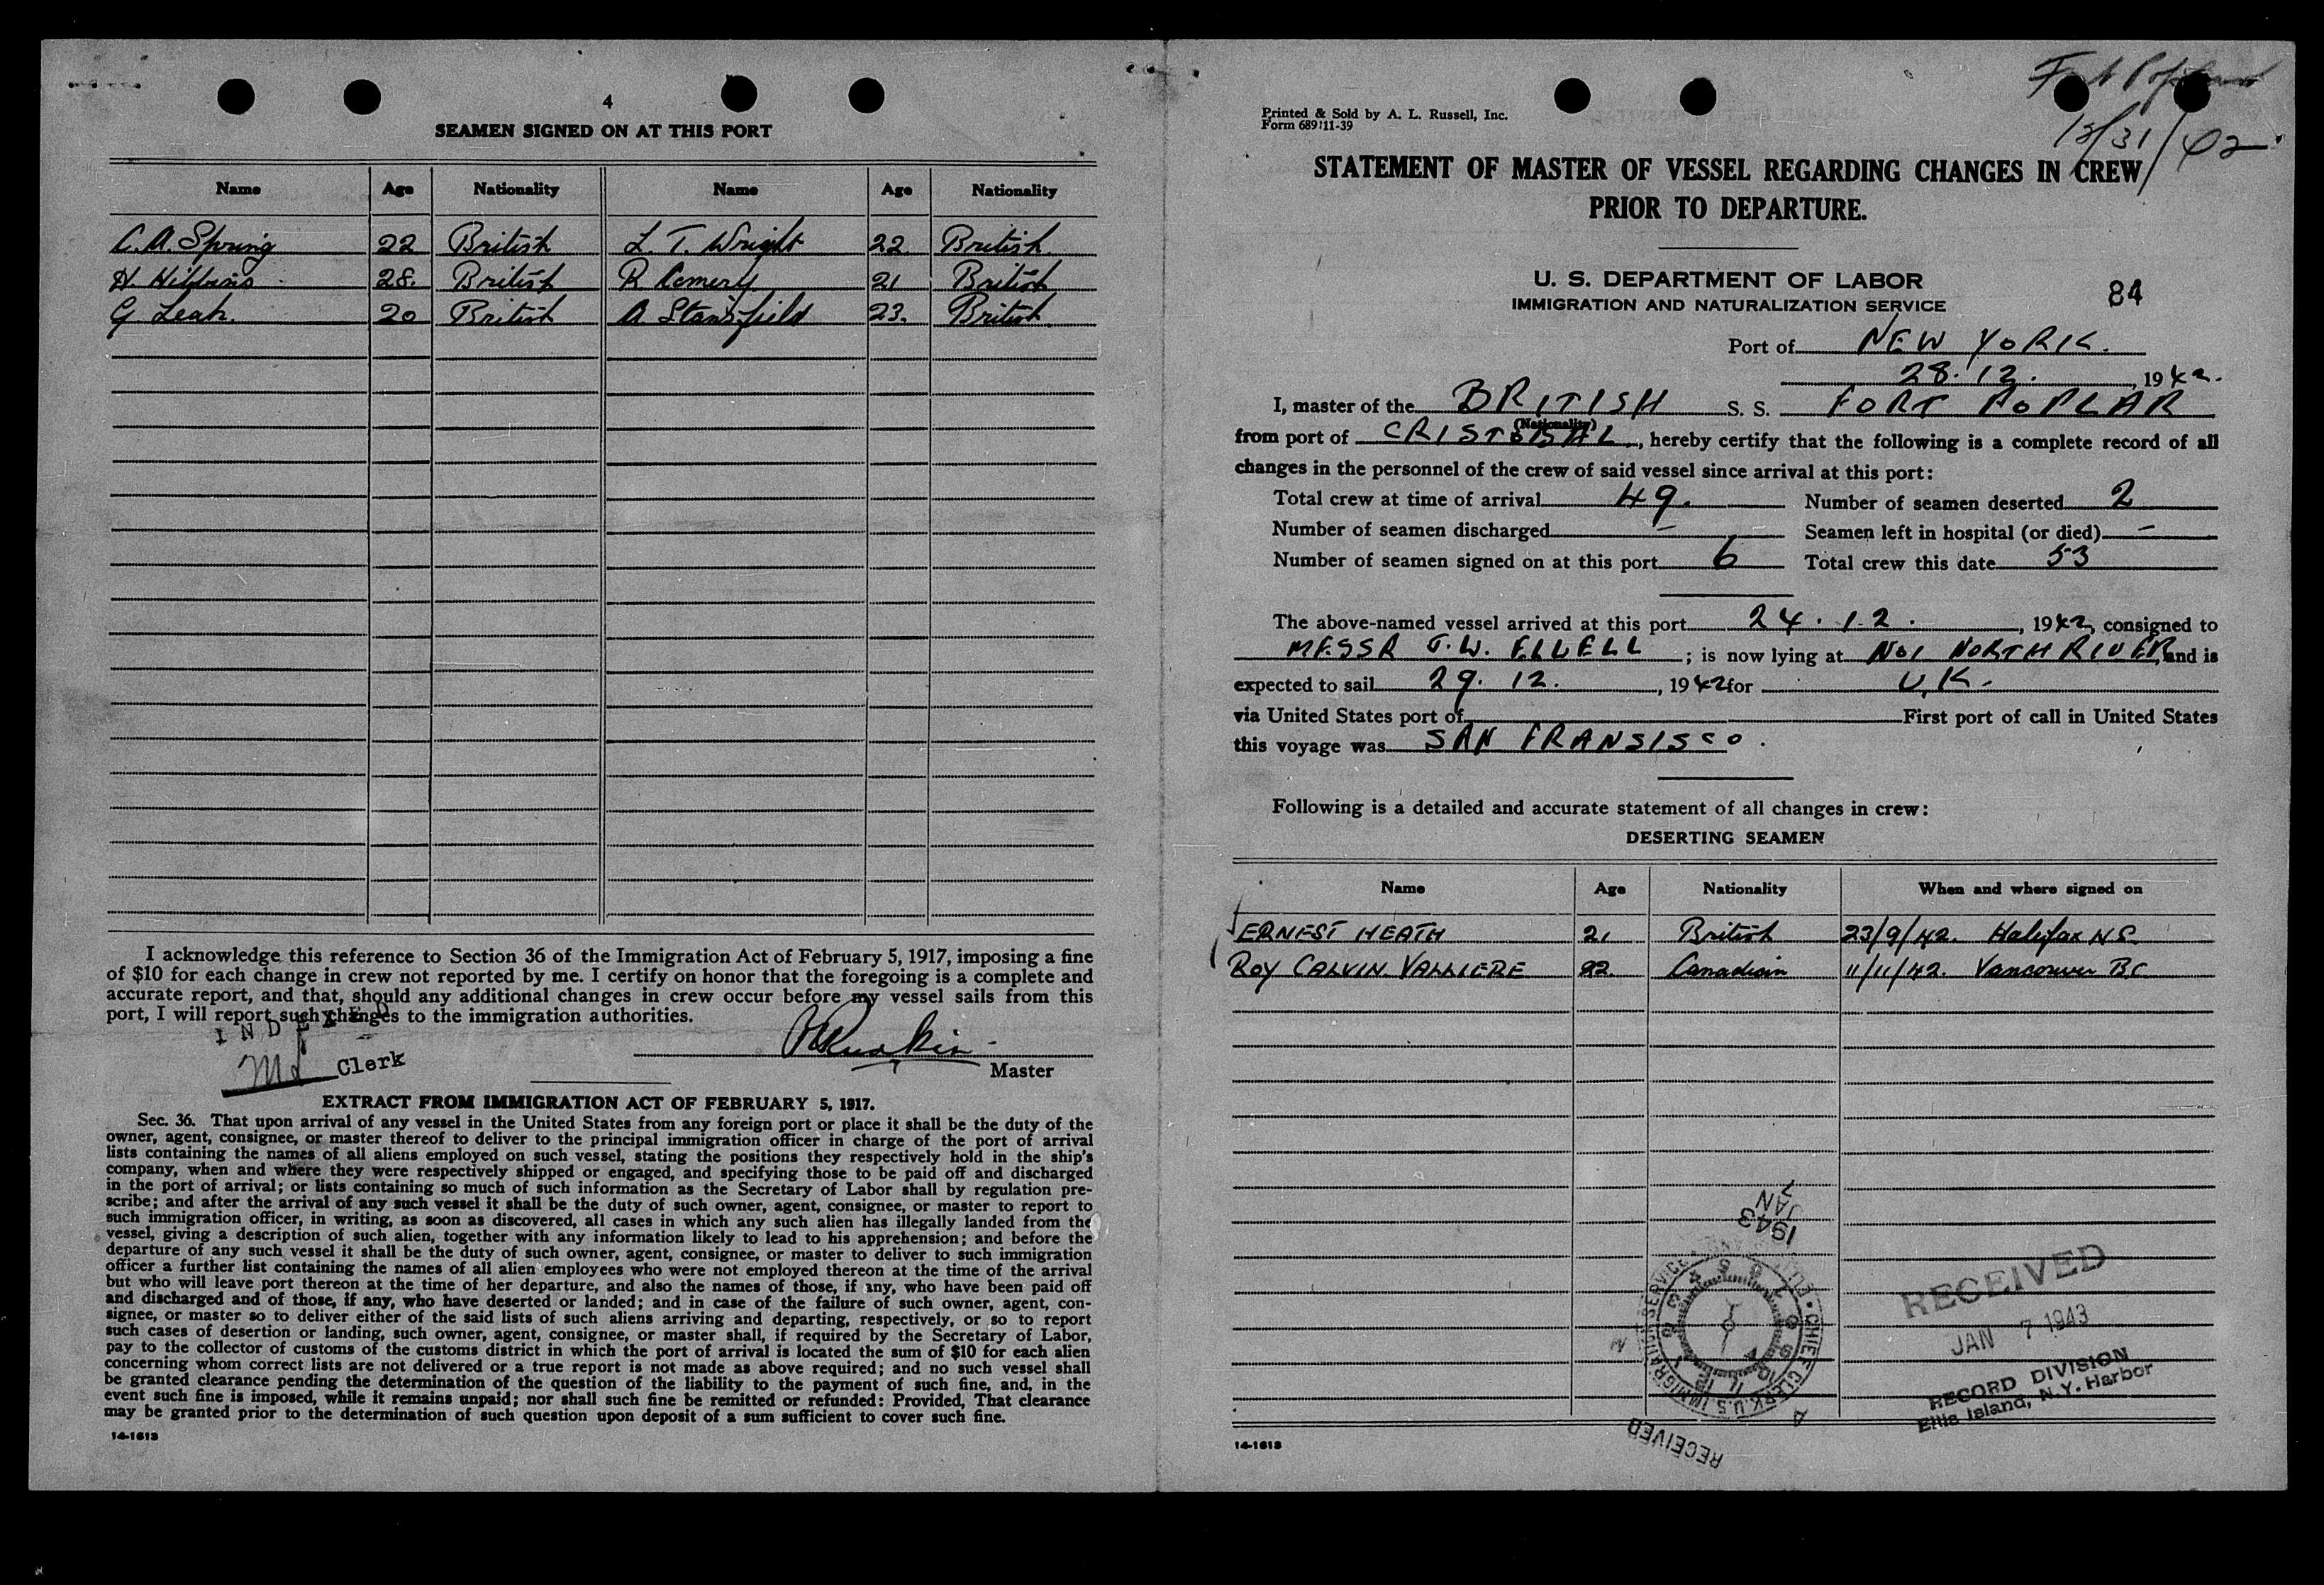 4
SEAMEN SIGNED ON AT THIS PORT
Name Age Nationality Name Age Nationality
C. A. Spring 22 British L. T. Wright 22. British.
H. 28. British R 21 British
G Leah. 20 British A Stansfield 23. British.
I acknowledge this reference to Section 36 of the Immigration Act of February 5, 1917, imposing a fine
of $10 for each change in crew not reported by me. I certify on honor that the foregoing is a complete and
accurate report, and that, should any additional changes in crew occur before my vessel sails from this
port, I will report such changes to the immigration authorities.
INDEXED
Clerk
Master
EXTRACT FROM IMMIGRATION ACT OF FEBRUARY 5, 1917.
Sec. 36. That upon arrival of any vessel in the United States from any foreign port or place it shall be the duty of the
owner, agent, consignee, or master thereof to deliver to the principal immigration officer in charge of the port of arrival
lists containing the names of all aliens employed on such vessel, stating the positions they respectively hold in the ship's
company, when and where they were respectively shipped or engaged, and specifying those to be paid off and discharged
in the port of arrival; or lists containing so much of such information as the Secretary of Labor shall by regulation pre-
scribe; and after the arrival of any such vessel it shall be the duty of such owner, agent, consignee, or master to report to
such immigration officer, in writing, as soon as discovered, all cases in which any such alien has illegally landed from the
vessel, giving a description of such alien, together with any information likely to lead to his apprehension; and before the
departure of any such vessel it shall be the duty of such owner, agent, consignee, or master to deliver to such immigration
officer a further list containing the names of all alien employees who were not employed thereon at the time of the arrival
but who will leave port thereon at the time of her departure, and also the names of those, if any, who have been paid off
and discharged and of those, if any, who have deserted or landed; and in case of the failure of such owner, agent, con-
signee, or master so to deliver either of the said lists of such aliens arriving and departing, respectively, or so to report
such cases of desertion or landing, such owner, agent, consignee, or master shall, if required by the Secretary of Labor,
pay to the collector of customs of the customs district in which the port of arrival is located the sum of $10 for each alien
concerning whom correct lists are not delivered or a true report is not made as above required; and no such vessel shall
be granted clearance pending the determination of the question of the liability to the payment of such fine, and, in the
event such fine is imposed, while it remains unpaid; nor shall such fine be remitted or refunded: Provided, That clearance
may be granted prior to the determination of such question upon deposit of a sum sufficient to cover such fine.
14-1613
Printed & Sold by A. L. Russell, Inc.
Form 689 11-39
12/31/42
STATEMENT OF MASTER OF VESSEL REGARDING CHANGES IN CREW
PRIOR TO DEPARTURE.
U. S. DEPARTMENT OF LABOR
IMMIGRATION AND NATURALIZATION SERVICE
84
Port of NEW YORK.
28. 12. , 1942.
I, master of the BRITISH S. S. FORT POPLAR
(Nationality)
from port of CRISTOBAL, hereby certify that the following is a complete record of all
changes in the personnel of the crew of said vessel since arrival at this port:
Total crew at time of arrival 49. Number of seamen deserted 2
Number of seamen discharged – Seamen left in hospital (or died) –
Number of seamen signed on at this port 6 Total crew this date 53
The above-named vessel arrived at this port 24. 12. , 1942, consigned to
MESSR J. W. ELWELL ; is now lying at No 1 NORTH RIVER, and is
expected to sail 29. 12. , 1942 for U.K.
via United States port of First port of call in United States
this voyage was SAN FRANSISCO.
Following is a detailed and accurate statement of all changes in crew:
DESERTING SEAMEN
Name Age Nationality When and where signed on
ERNEST HEATH 21 British 23/9/42. Halifax N.S.
ROY CALVIN VALLIERE 22. Canadian 11/11/42. Vancouver B.C.
1943
JAN
7
CHIEF CLERK U.S. IMMIGRATION SERVICE
RECEIVED
RECEIVED
JAN 7 1943
RECORD DIVISION
Ellis Island, N.Y. Harbor
14-1613